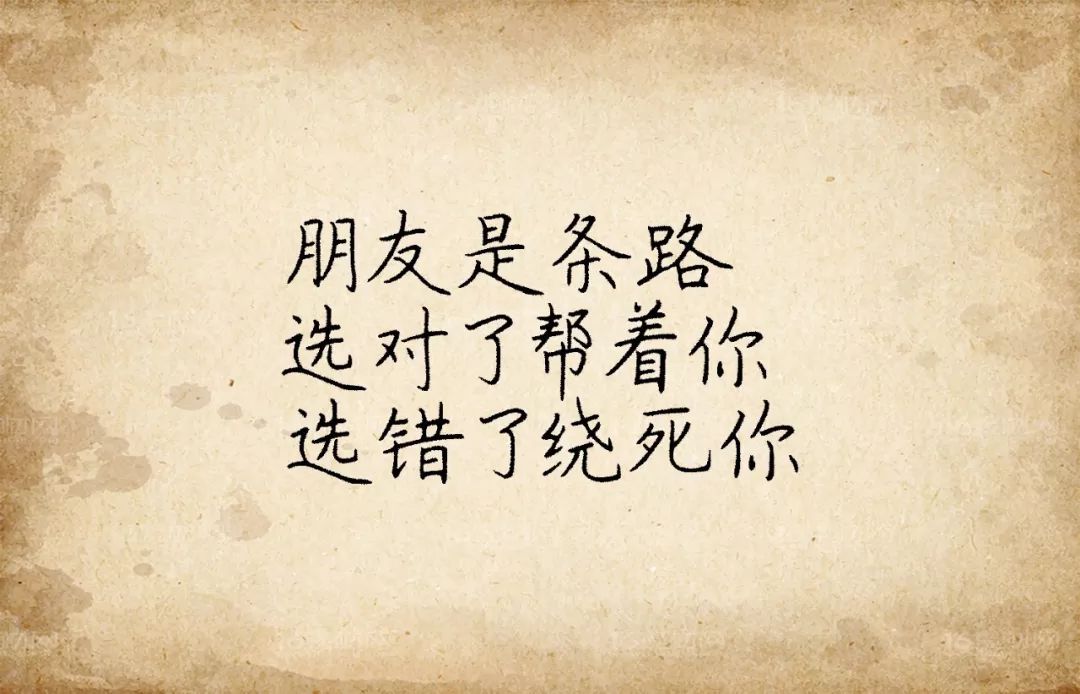 朋友是条路
选对了帮着你
选错了绕死你